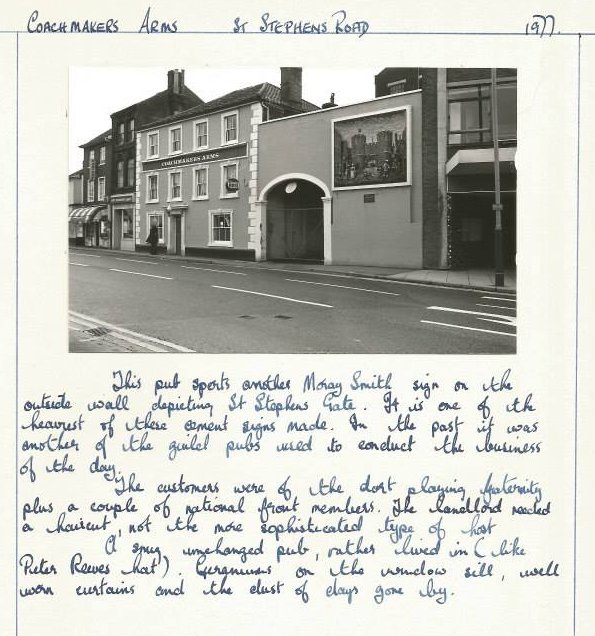 COACHMAKERS ARMS ST STEPHENS ROAD 1977.
COACHMAKERS ARMS
This pub sports another Moray Smith sign on the
outside wall depicting St Stephens Gate. It is one of the
heaviest of these cement signs made. In the past it was
another of the guild pubs used to conduct the business
of the day.
The customers were of the dart playing fraternity
plus a couple of national front members. The landlord needed
a haircut, not the more sophisticated type of host
A snug unchanged pub, rather lived in (like
Pieter Reeves hat). Geraniums on the window sill, well
worn curtains and the dust of days gone by.